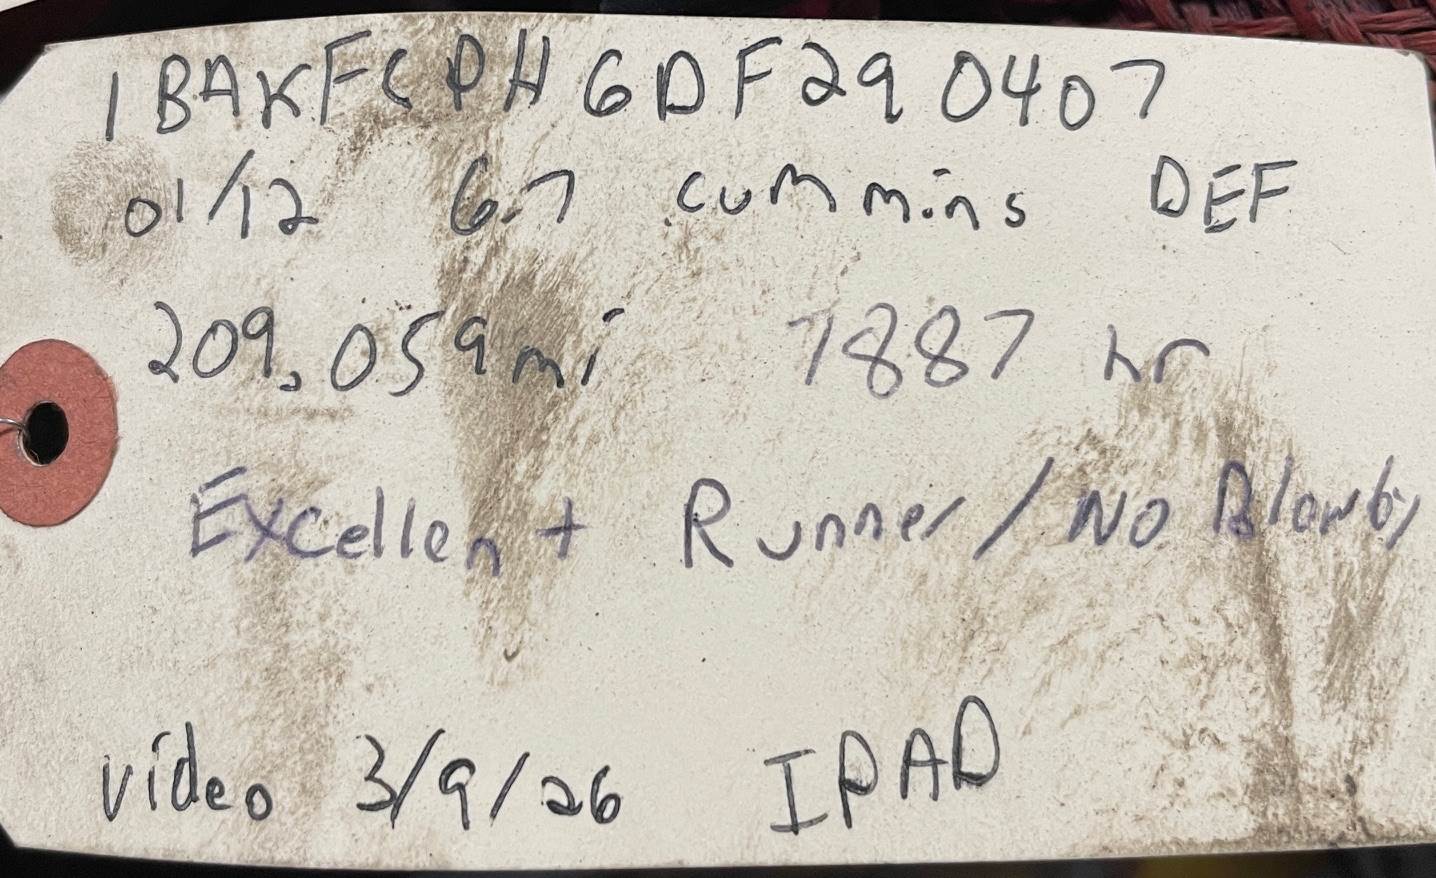 1BAKFCPH6DF290407
01/12 6.7 cummins DEF
209,059mi 7887 hr
Excellent Runner/No Blowby
video 3/9/26 IPAD